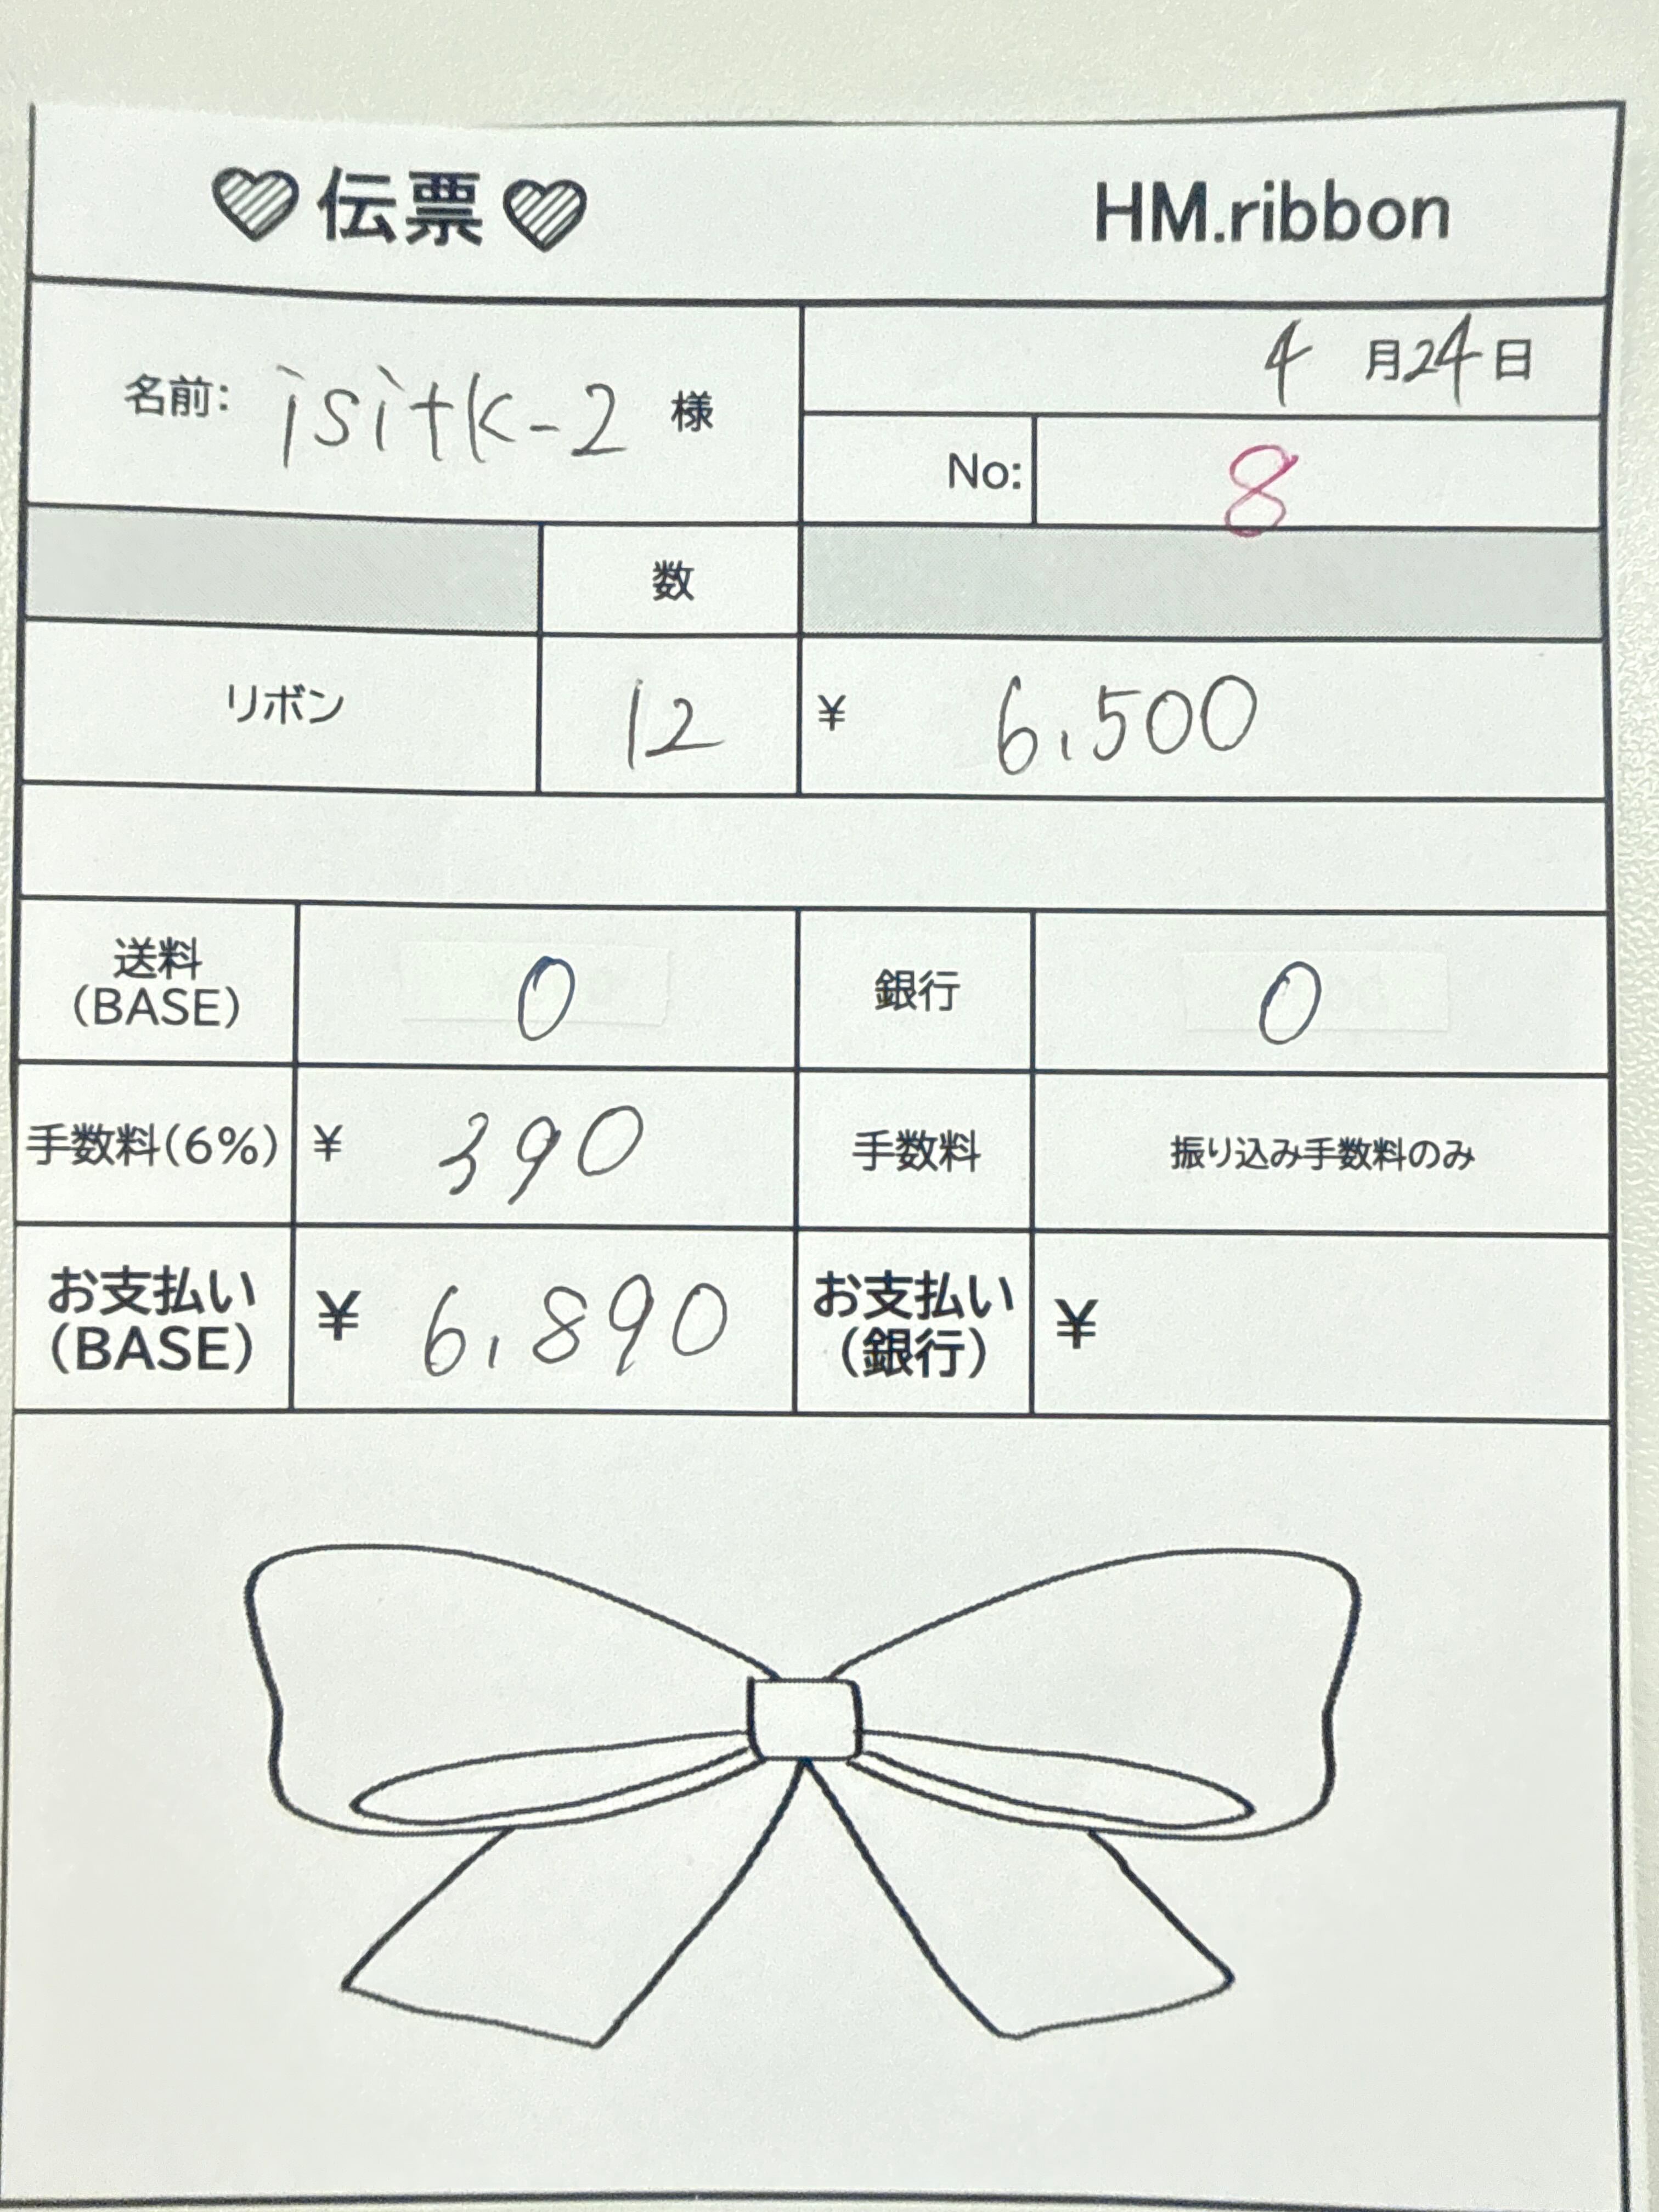 伝票 HM.ribbon
名前: isitk-2 様
4 月 24 日
No: 8
数
リボン 12 ¥ 6,500
送料 (BASE) 0 銀行 0
手数料(6%) ¥ 390 手数料 振り込み手数料のみ
お支払い (BASE) ¥ 6,890 お支払い (銀行) ¥